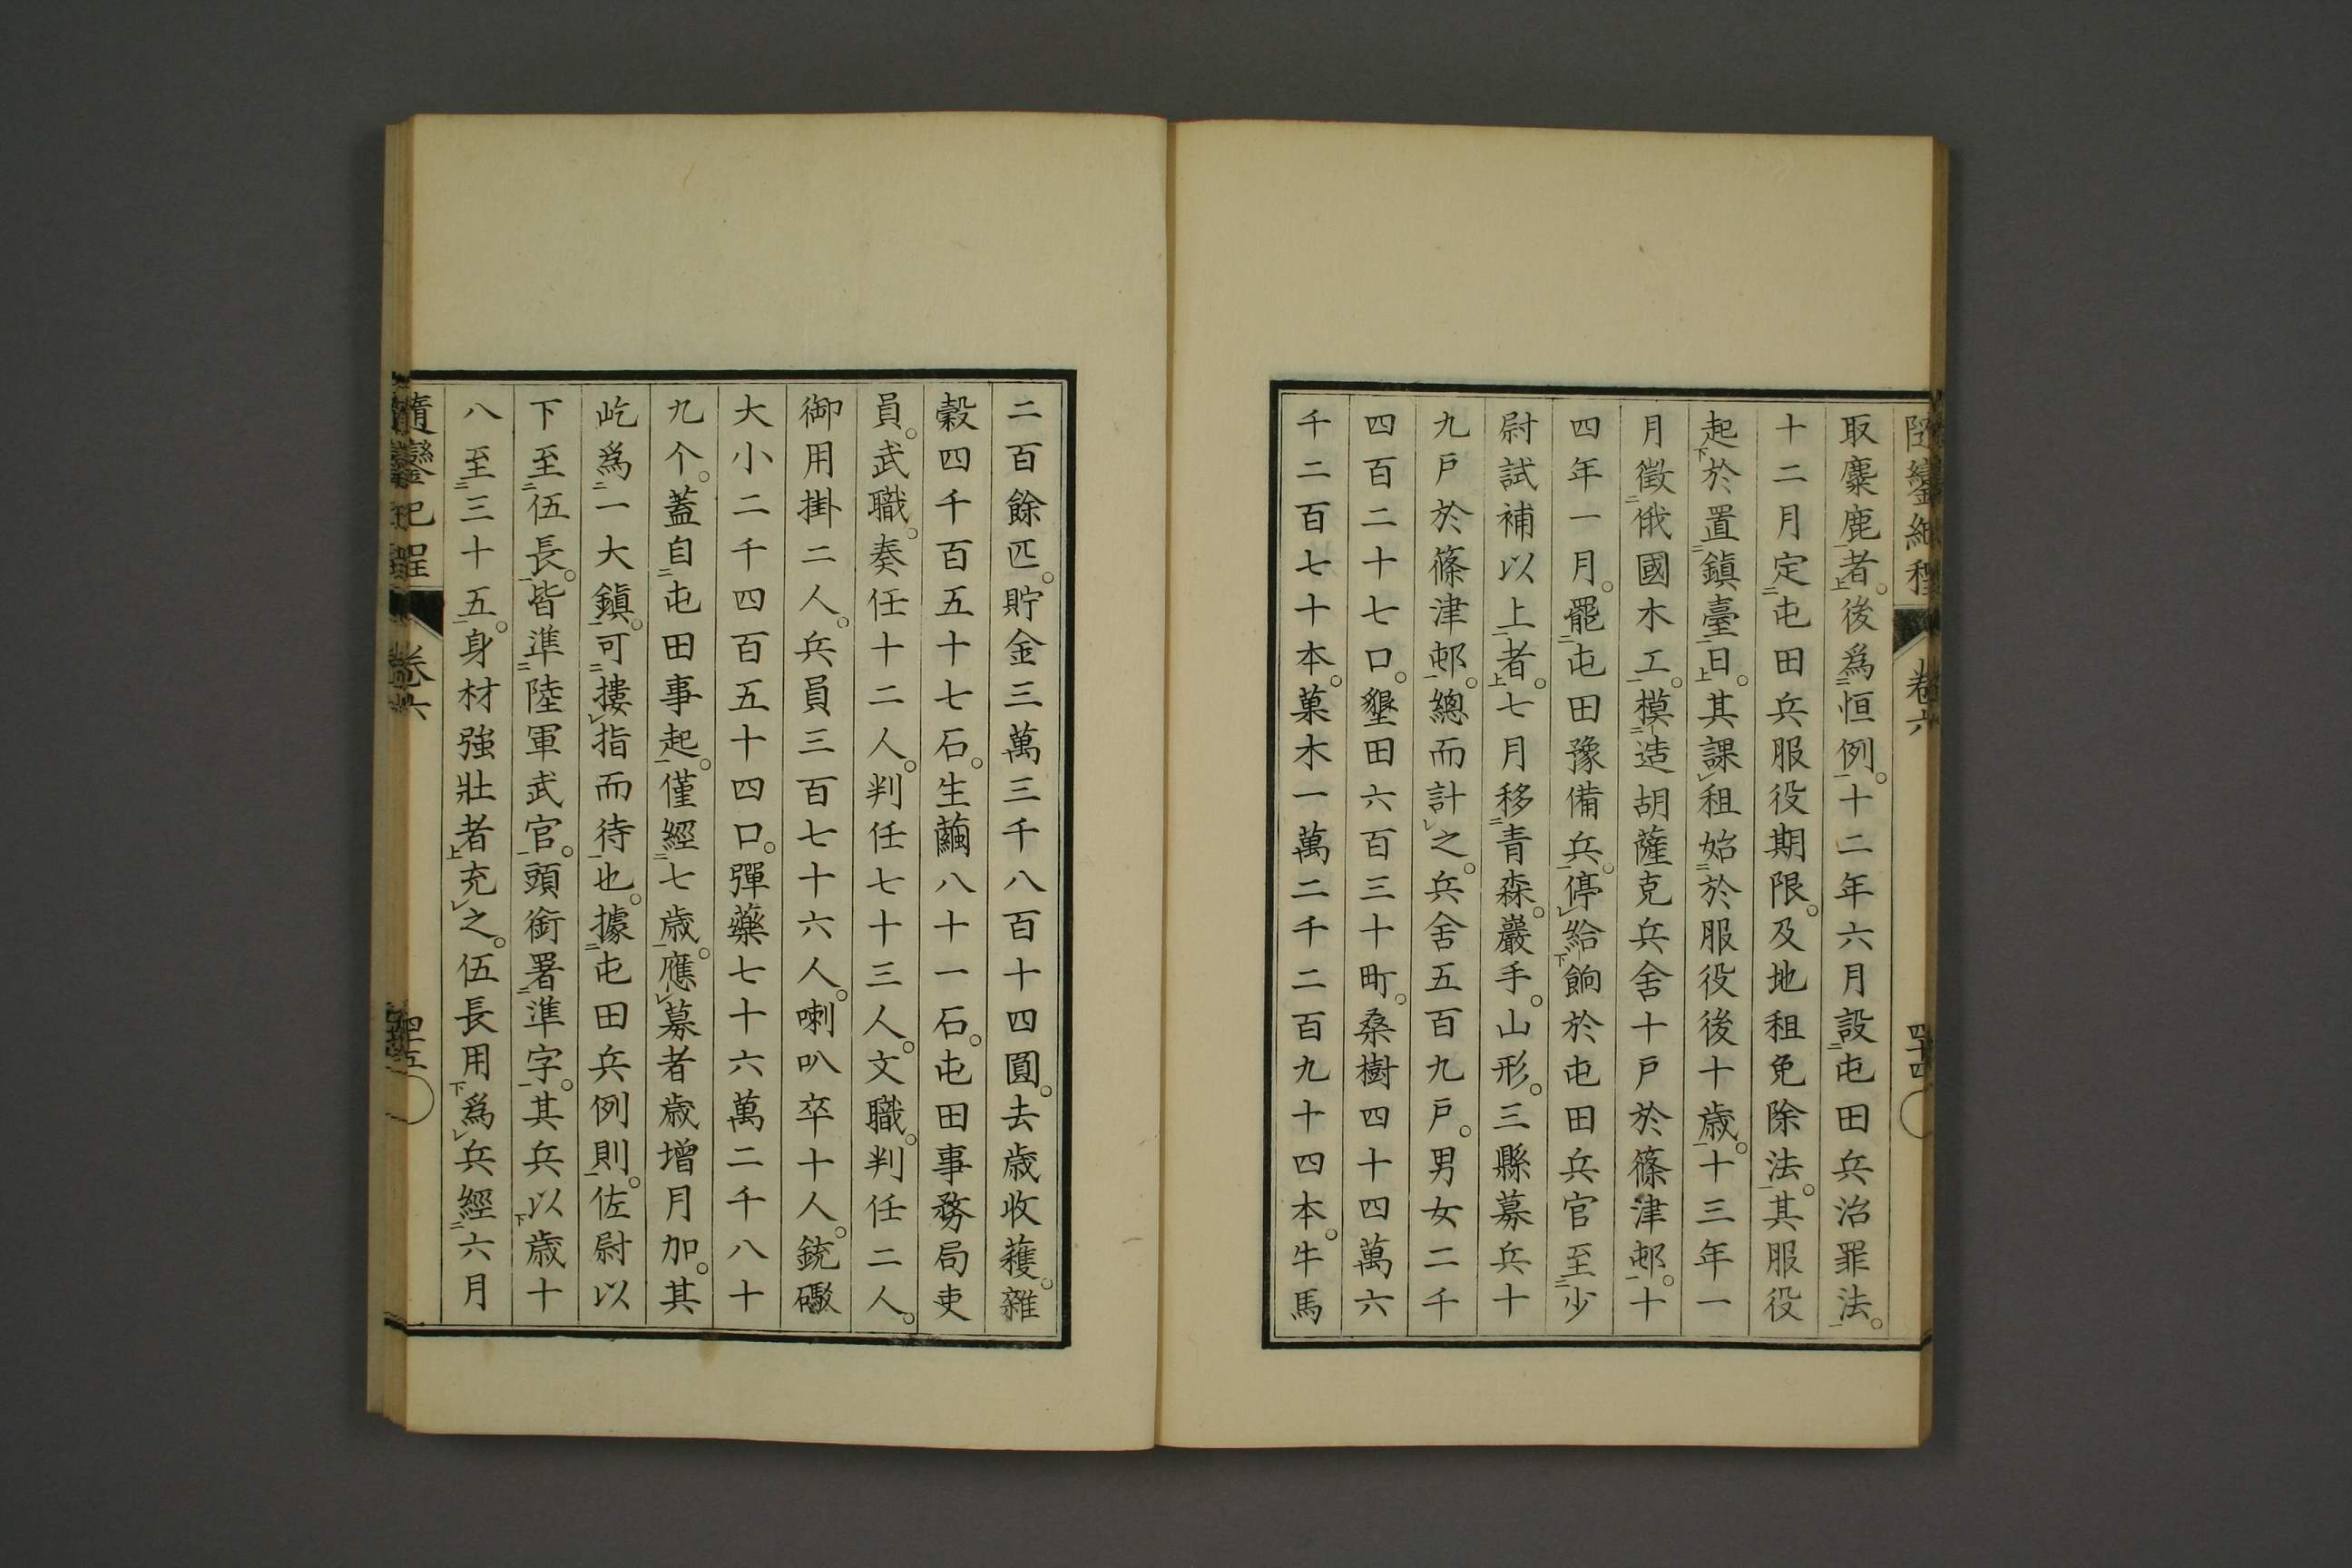 隨鑾紀程 卷六 四十四
取麋鹿者。後爲恒例。十二年六月設屯田兵治罪法。
十二月定屯田兵服役期限。及地租免除法。其服役
起於置鎭臺日。其課租始於服役後十歲。十三年一
月徵俄國木工。模造胡薩克兵舍十戶於篠津邨。十
四年一月。罷屯田豫備兵。停給餉於屯田兵官至少
尉試補以上者。七月移青森。巖手。山形。三縣募兵十
九戶於篠津邨。總而計之。兵舍五百九戶。男女二千
四百二十七口。墾田六百三十町。桑樹四十四萬六
千二百七十本。菓木一萬二千二百九十四本。牛馬
二百餘匹。貯金三萬三千八百十四圓。去歲收穫。雜
穀四千百五十七石。生繭八十一石。屯田事務局吏
員。武職。奏任十二人。判任七十三人。文職。判任二人。
御用掛二人。兵員三百七十六人。喇叭卒十人。銃礮
大小二千四百五十四口。彈藥七十六萬二千八十
九个。蓋自屯田事起。僅經七歲。應募者歲增月加。其
屹爲一大鎭。可摟指而待也。據屯田兵例則。佐尉以
下至伍長。皆準陸軍武官。頭銜署準字。其兵以歲十
八至三十五。身材強壯者充之。伍長用爲兵經六月
隨鑾紀程 卷六 四十五